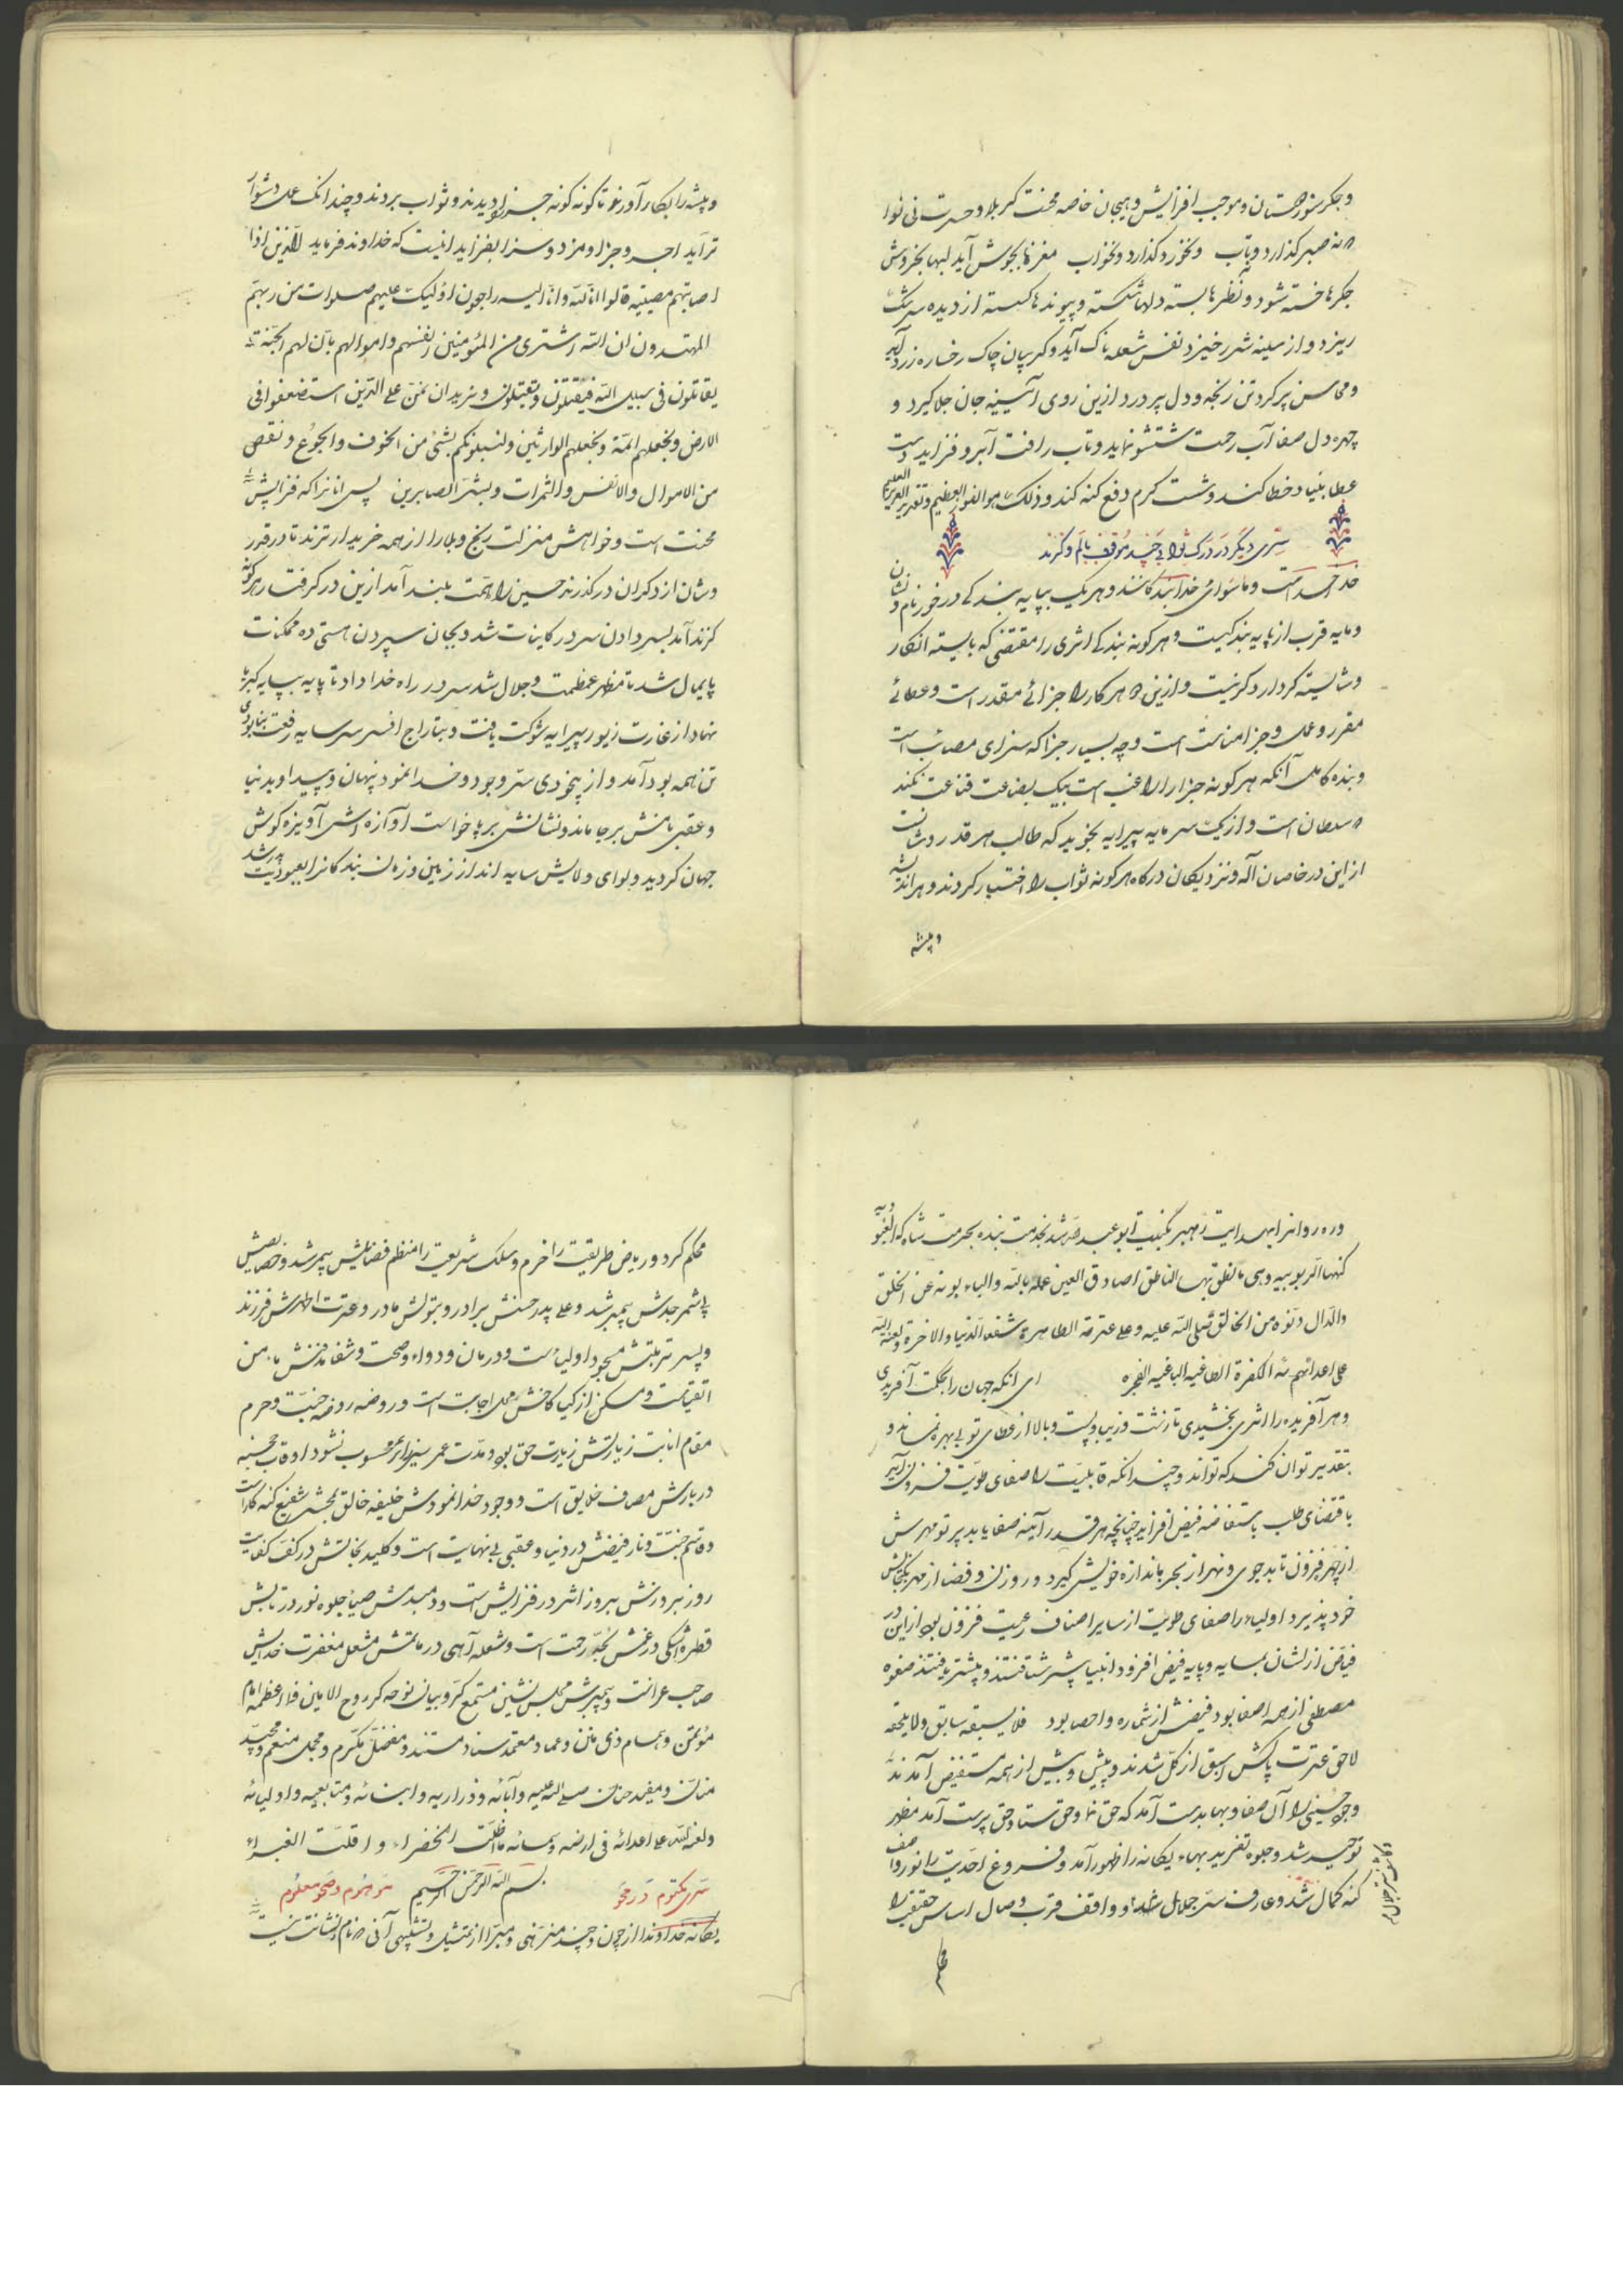 و جگرسوز دوستان و موجب افزایش و هیجان خاصه محنت کربلا و حسرت نی نوا
نه صبر گذارد و تاب و نخورد گذارد و نخواب مغزها بجوش آید لبها بخروش
جگرها خسته شود و نظرها بسته دلها شکسته و پیوندها گسسته از دیده سرشک
ریزد و از سینه شرر خیزد نفس شعله ناک آید و گریبان چاک رخساره زرد آید
و محاسن پر گرد تن رنجه و دل پر درد ازین روی آئینه جان جلا گیرد و
چهره دل صفا آب رحمت شستشو نماید و تاب رافت آبرو فزاید دست
عطا بنیاد خطا کند و شست کرم دفع گنه کند و ذلک هو الفوز العظیم و تقدیر العزیز العلیم
سری دیگر در درک ثوابی چند موقف بالم و گزند
خدا خداست و ماسوای خدا بندگانند و هر یک بپایه بندگی درخور نام و نشان
و مایه قرب از پایه بندگیست و هر گونه بندگی اثری را مقتضی که بایسته انکار
و شایسته کردار دگر نیست و ازین هر کار را جزائی مقدر است و عطائی
مقرر و عمل و جزا مناسبت است و چه بسیار جزا که سزای مصائب است
و بنده کامل آنکه هر گونه جزا را راغب است بیک بضاعت قناعت نکند
سلطان است و از یک سرمایه پیرایه بخرید که طالب هر قدر و شانست
از این در خاصان اله و نزدیکان درگاه هر گونه ثواب را اختیار کردند و هر اندیشه
و پیشه
و پیشه را بکار آوردند تا گونه گونه جزا دیدند و ثواب بردند و چندانک عمل دشوار
تر آید اجر و جزا و مزد و سزا بفزاید اینست که خداوند فرماید الذین اذا
اصابتهم مصیبة قالوا انا لله وانا الیه راجعون اولیک علیهم صلوات من ربهم
المهتدون ان الله اشتری من المؤمنین انفسهم واموالهم بان لهم الجنة
یقاتلون فی سبیل الله فیقتلون ویقتلون ونرید ان نمن علی الذین استضعفوا فی
الارض ونجعلهم ائمة ونجعلهم الوارثین ولنبلونکم بشئ من الخوف والجوع ونقص
من الاموال والانفس والثمرات وبشر الصابرین پس انانرا که فزایش
محنت است و خواهش منزلت رنج و بلا را از همه خریدارترند تا در قدر
و شان از دگران درگذرند حسین را همت بلند آمد ازین در گرفتار هر گونه
گزند آمد بسر دادن سردار کاینات شد و بجان سپردن هستی ده ممکنات
پایمال شد تا مظهر عظمت و جلال شد سر در راه خدا داد تا پایه بپایه کبریا
نهاد از غارت زیور پیرایه شوکت یافت و بتاراج افسر سر سایه رفعت بنابودی
تن همه بود آمد و از بیخودی ستر وجود و خدا نمود پنهان و پیدا و بدنیا
و عقبی نامش برجا ماند و نشانش برپا خواست آوازه اش آویزه گوش
جهان گردید و لوای ولایش سایه انداز زمین و زمان بندگانرا بعبودیت پدر شد
و رهروانرا بهدایت رهبر بکنیت ابوعبدالله شد بخدمت بنده بحرمت شاه که العبودیه
کنهها الربوبیه وهی ما نطق بها الناطق الصادق العین علمه بالله والباء بونه عن الخلق
والدال دنوه من الخالق صلی الله علیه وعلی عترته الطاهرة شفعاء الدنیا والاخرة ولعنة الله
علی اعدائهم الکفرة الطاغیه الباغیه الفجره ای آنکه جهان را بحکمت آفریدی
و هر آفریده را اثری بخشیدی تا زشت و زیبا و پست و بالا از عطای تو بی بهره نماند و
بقدیر توان کند که تواند و چندانکه قابلیت را صفای طویت فزون آید
باقتضای طلب باستفاضه فیض افزاید چنانچه هر قدر آینه صفا یابد پرتو مهرش
از چهر فزون تابد جوی و نهر از بحر باندازه خویش گیرد و روزن و فضا از مهر بگنجایش
خود پذیرد اولیاء را صفای طویت از سایر اصناف رعیت فزون بود از این در
فیاض ازلشان بسایه و پایه فیض افزود انبیا پیشتر شتافتند و بیشتر یافتند صفوه
مصطفی از همه اصفا بود فیضش از شماره و احصا بود فلا یسبقه سابق ولا یلحقه
لاحق عترت پاکش اسبق از کل شدند و پیش و بیش از همه مستفیض آمدند
وجود حسینی را آن صفا و بها بدست آمد که حق نما و حق ستا و حق پرست آمد مظهر
توحید شد و جلوه تفرید بهاء یگانه را ظهور آمد و فروغ احدیت را نور واصف
کنه کمال شد و عارف سر جلال شاهد و واقف قرب وصال اساس حقیقت را
محکم
محکم کرد و ریاض طریقت را خرم و سلک شریعت را منظم فضائلش بیمر شد و خصایصش
بی شمر جدش پیمبر شد و علی پدر حسنش برادر و بتولش مادر و عترت اطهرش فرزند
و پسر تربتش مسجود اولیاست و درمان و دواء و صحت و شفا مدفنش مامن
اتقیاست و مسکن ازکیا کاخش محل اجابت است و روضه روضه جنت و حرم
مقام انابت زیارتش زیارت حق بود و مدت عمر سیر از عمر محسوب نشود
دربارش مصاف خلایق است و وجود خدا نمودش خلیفه خالق بمحشر شفیع گنه کار است
و قاسم جنت و نار فیضش در دنیا و عقبی بی نهایت است و کلید نجاتش در کف کفایت
روز بروزش بروز اثر در فزایش است و دمبدمش ضیا جلوه نور در تابش
قطره اشکی در غمش لجه رحمت است و شعله آهی در ماتمش مشعل مغفرت خدایش
صاحب عزاست و پیمبرش مجلس نشین مستمع کروبیان نوحه گر روح الامین
مؤتمن و همام ذی منن و عماد معتمد سناد مستند و مفضل مکرم و مجلل منعم
منان و مفید حنان صلی الله علیه وآبائه وذراریه وابنائه ومتابعیه واولیائه
ولعنة الله علی اعدائه فی ارضه وسمائه ما اظلت الخضراء و اقلت الغبراء
سری مکتوم در محو بسم الله الرحمن الرحیم موهوم و صحو معلوم
یگانه خداوندا از چون و چند منزهی و مبرا از تمثیل و تشبیهی آنی نام و نشانت نیست